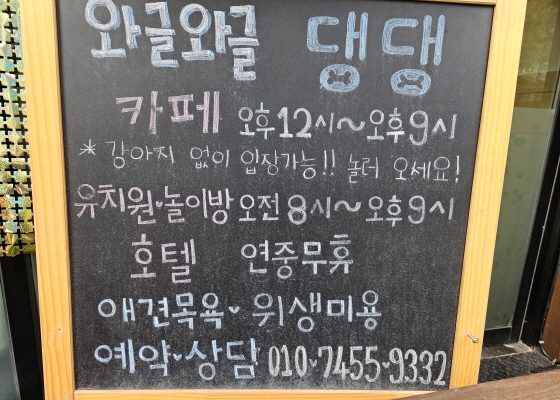 와글와글 댕댕
카페 오후12시~오후9시
* 강아지 없이 입장가능!! 놀러 오세요!
유치원·놀이방 오전 8시~오후9시
호텔 연중무휴
애견목욕·위생미용
예약·상담 010-7455-9332